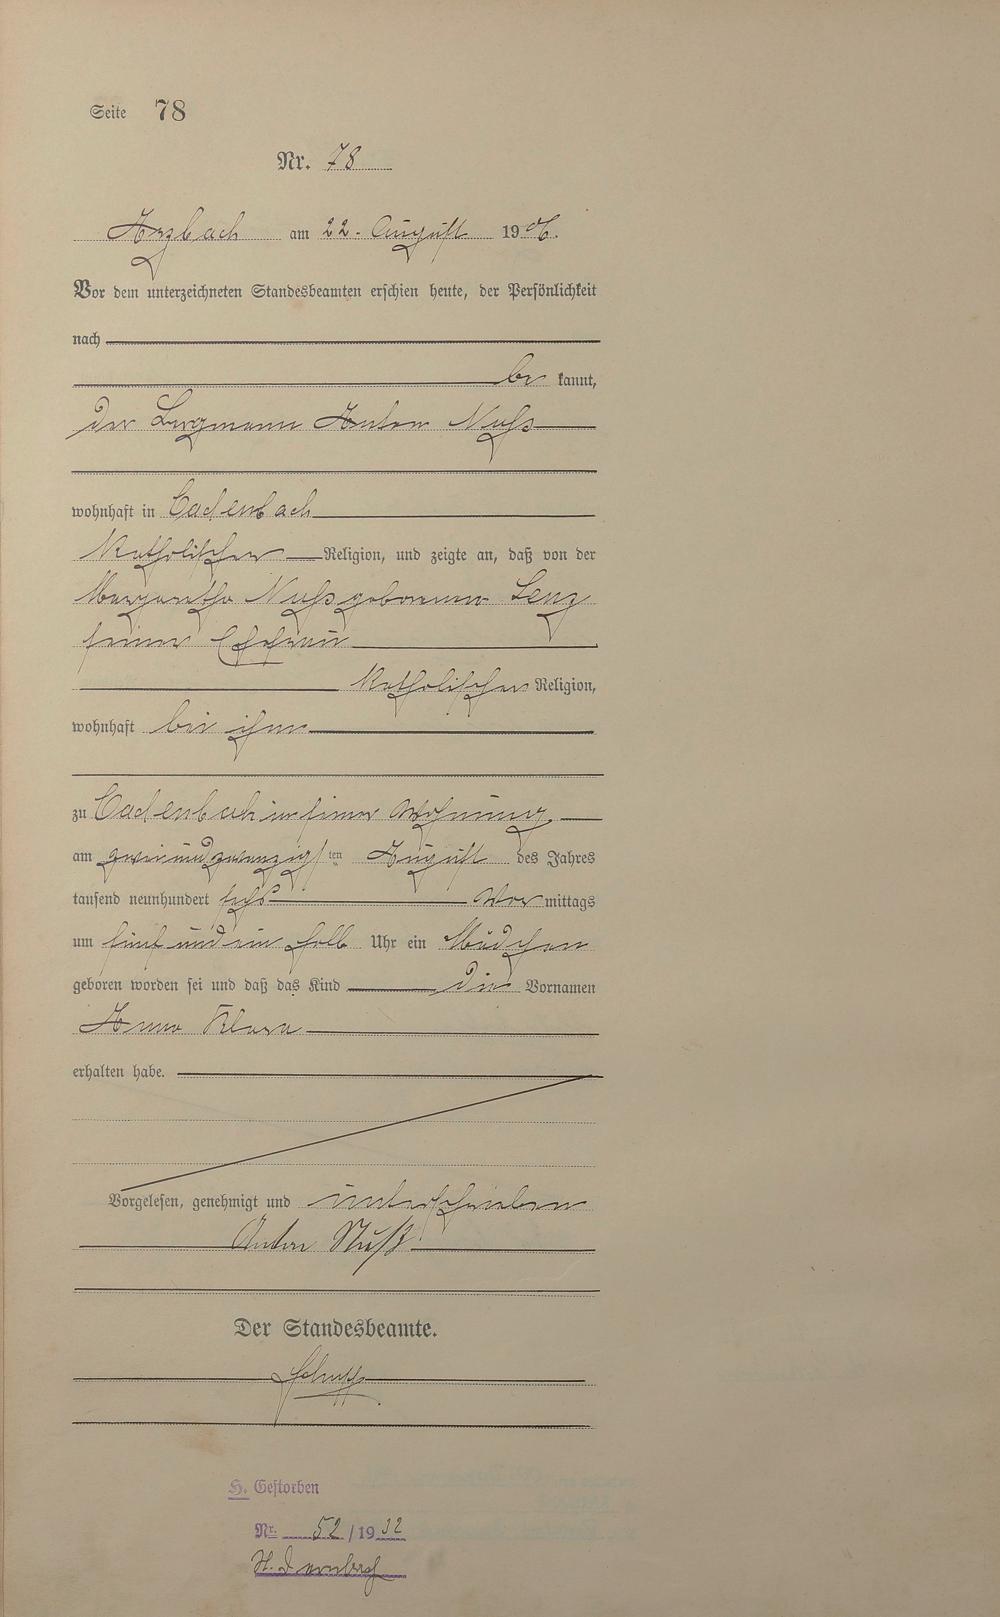 Seite 78
Nr. 78
Arzbach am 22. August 1906.
Vor dem unterzeichneten Standesbeamten erschien heute, der Persönlichkeit
nach
be kannt,
der Bergmann Anton Nuß
wohnhaft in Cadenbach
katholischer Religion, und zeigte an, daß von der
Margaretha Nuß geborenen Lenz
seiner Ehefrau
katholischer Religion,
wohnhaft bei ihm
zu Cadenbach in seiner Wohnung
am zweiundzwanzigsten August des Jahres
tausend neunhundert sechs Vor mittags
um fünf und ein halb Uhr ein Mädchen
geboren worden sei und daß das Kind die Vornamen
Anna Klara
erhalten habe.
Vorgelesen, genehmigt und unterschrieben
Anton Nuß
Der Standesbeamte.
H. Gestorben
Nr. 52/1932